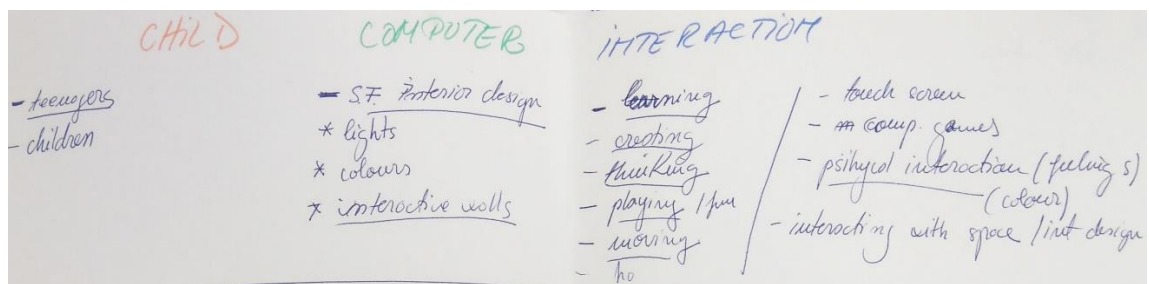 CHILD
- teenagers
- children
COMPUTER
- S.F. Interior design
* lights
* colours
* interactive walls
INTERACTION
- learning
- creating
- thinking
- playing / fun
- moving
- ho
- touch screen
- comp. games
- psihycol interaction (feelings)
(colour)
- interacting with space / int design